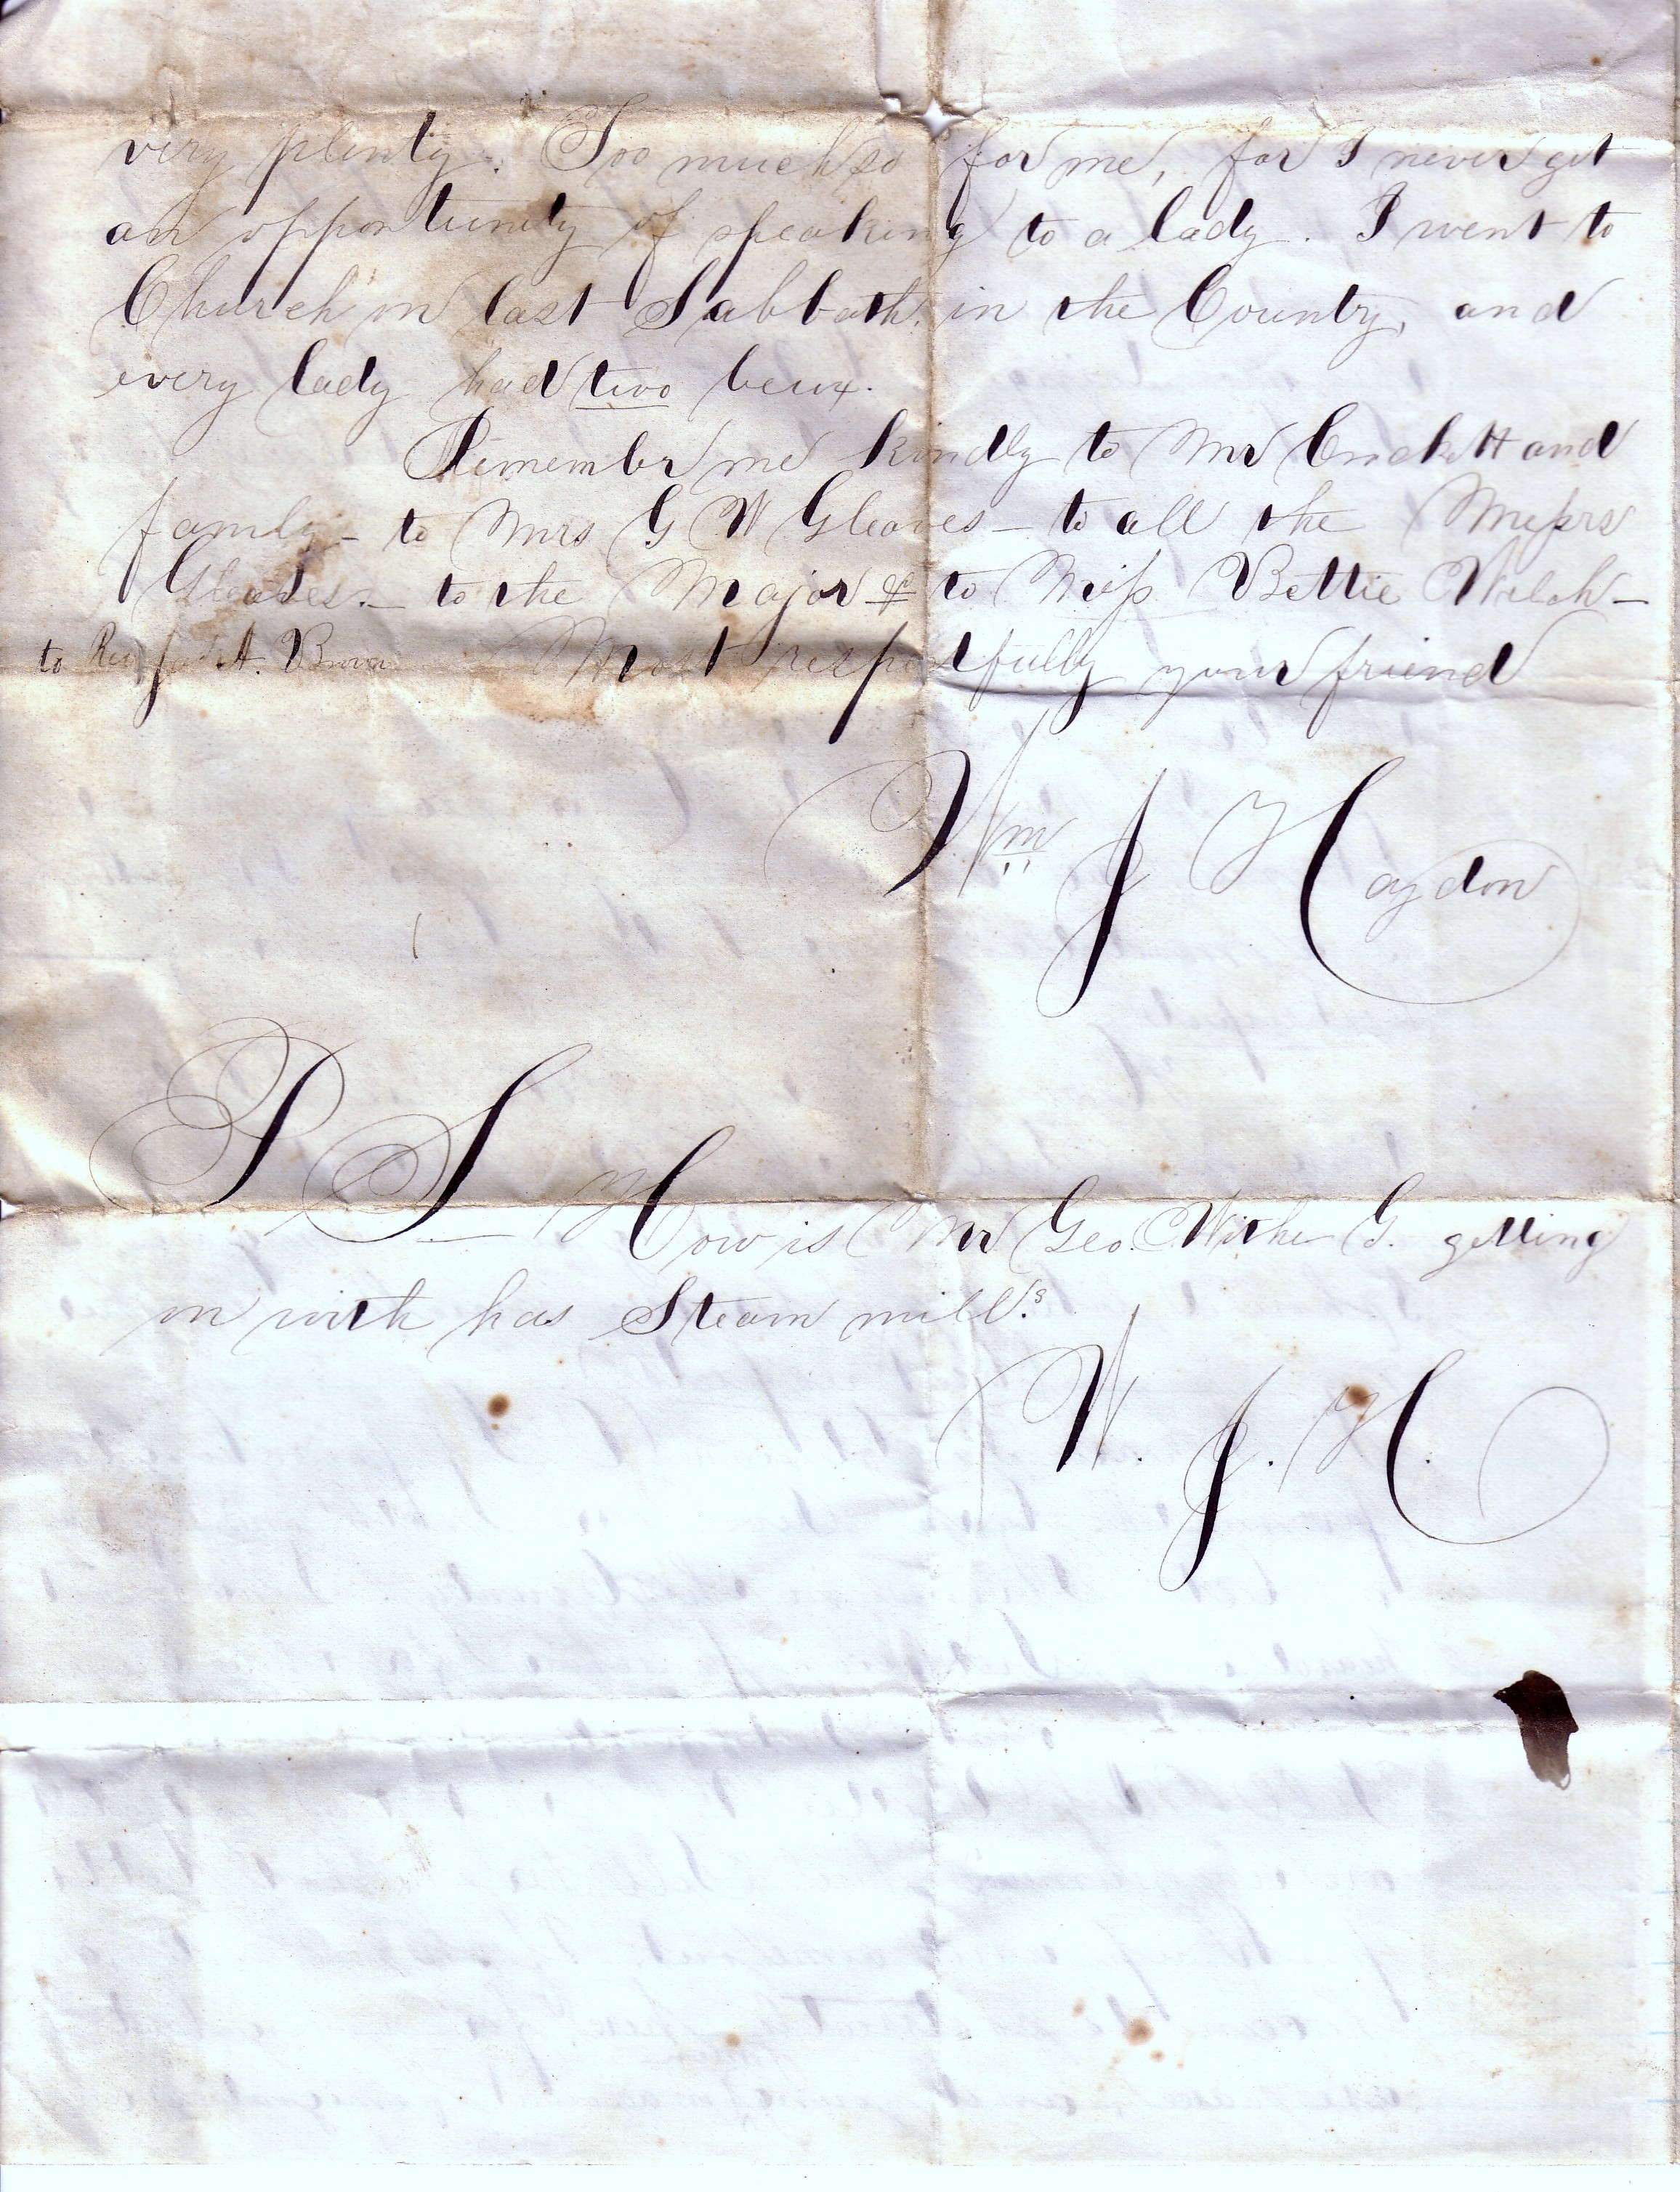 very plenty. Too much so for me, for I never get
an opportunity of speaking to a lady. I went to
Church on last Sabbath, in the County, and
every lady had two beux.
Remember me kindly to Mr Crockett and
family – to Mrs G W Gleaves – to all the Messrs
Gleaves. – to the Major & to Miss Bettie Welsh –
to Rev A. Brown Most respectfully your friend
Wm J Haydon
P S – How is Mr Geo. G. getting
on with his Steam mill.s
W. J. H.